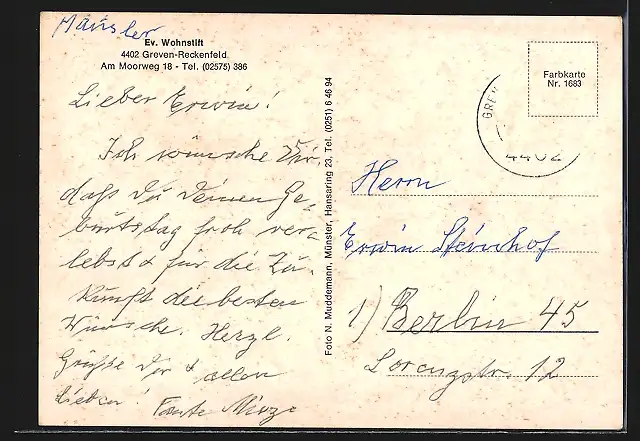 Häusler
Ev. Wohnstift
4402 Greven-Reckenfeld
Am Moorweg 18 - Tel. (02575) 386
Lieber Erwin!
Ich wünsche Dir,
daß Du Deinen Ge-
burtstag froh ver-
lebst & für die Zu-
kunft die besten
Wünsche. Herzl.
Grüße Dir & allen
Lieben! Tante Minze
Foto N. Muddemann, Münster, Hansaring 23, Tel. (0251) 6 46 94
Farbkarte
Nr. 1683
GREV
4402
Herrn
Erwin Steinhof
1) Berlin 45
Lorenzstr. 12